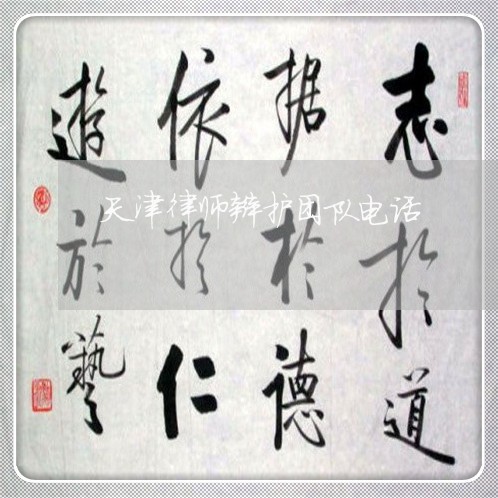 志扵道
据扵德
依扵仁
遊於藝
天津律师辩护团队电话